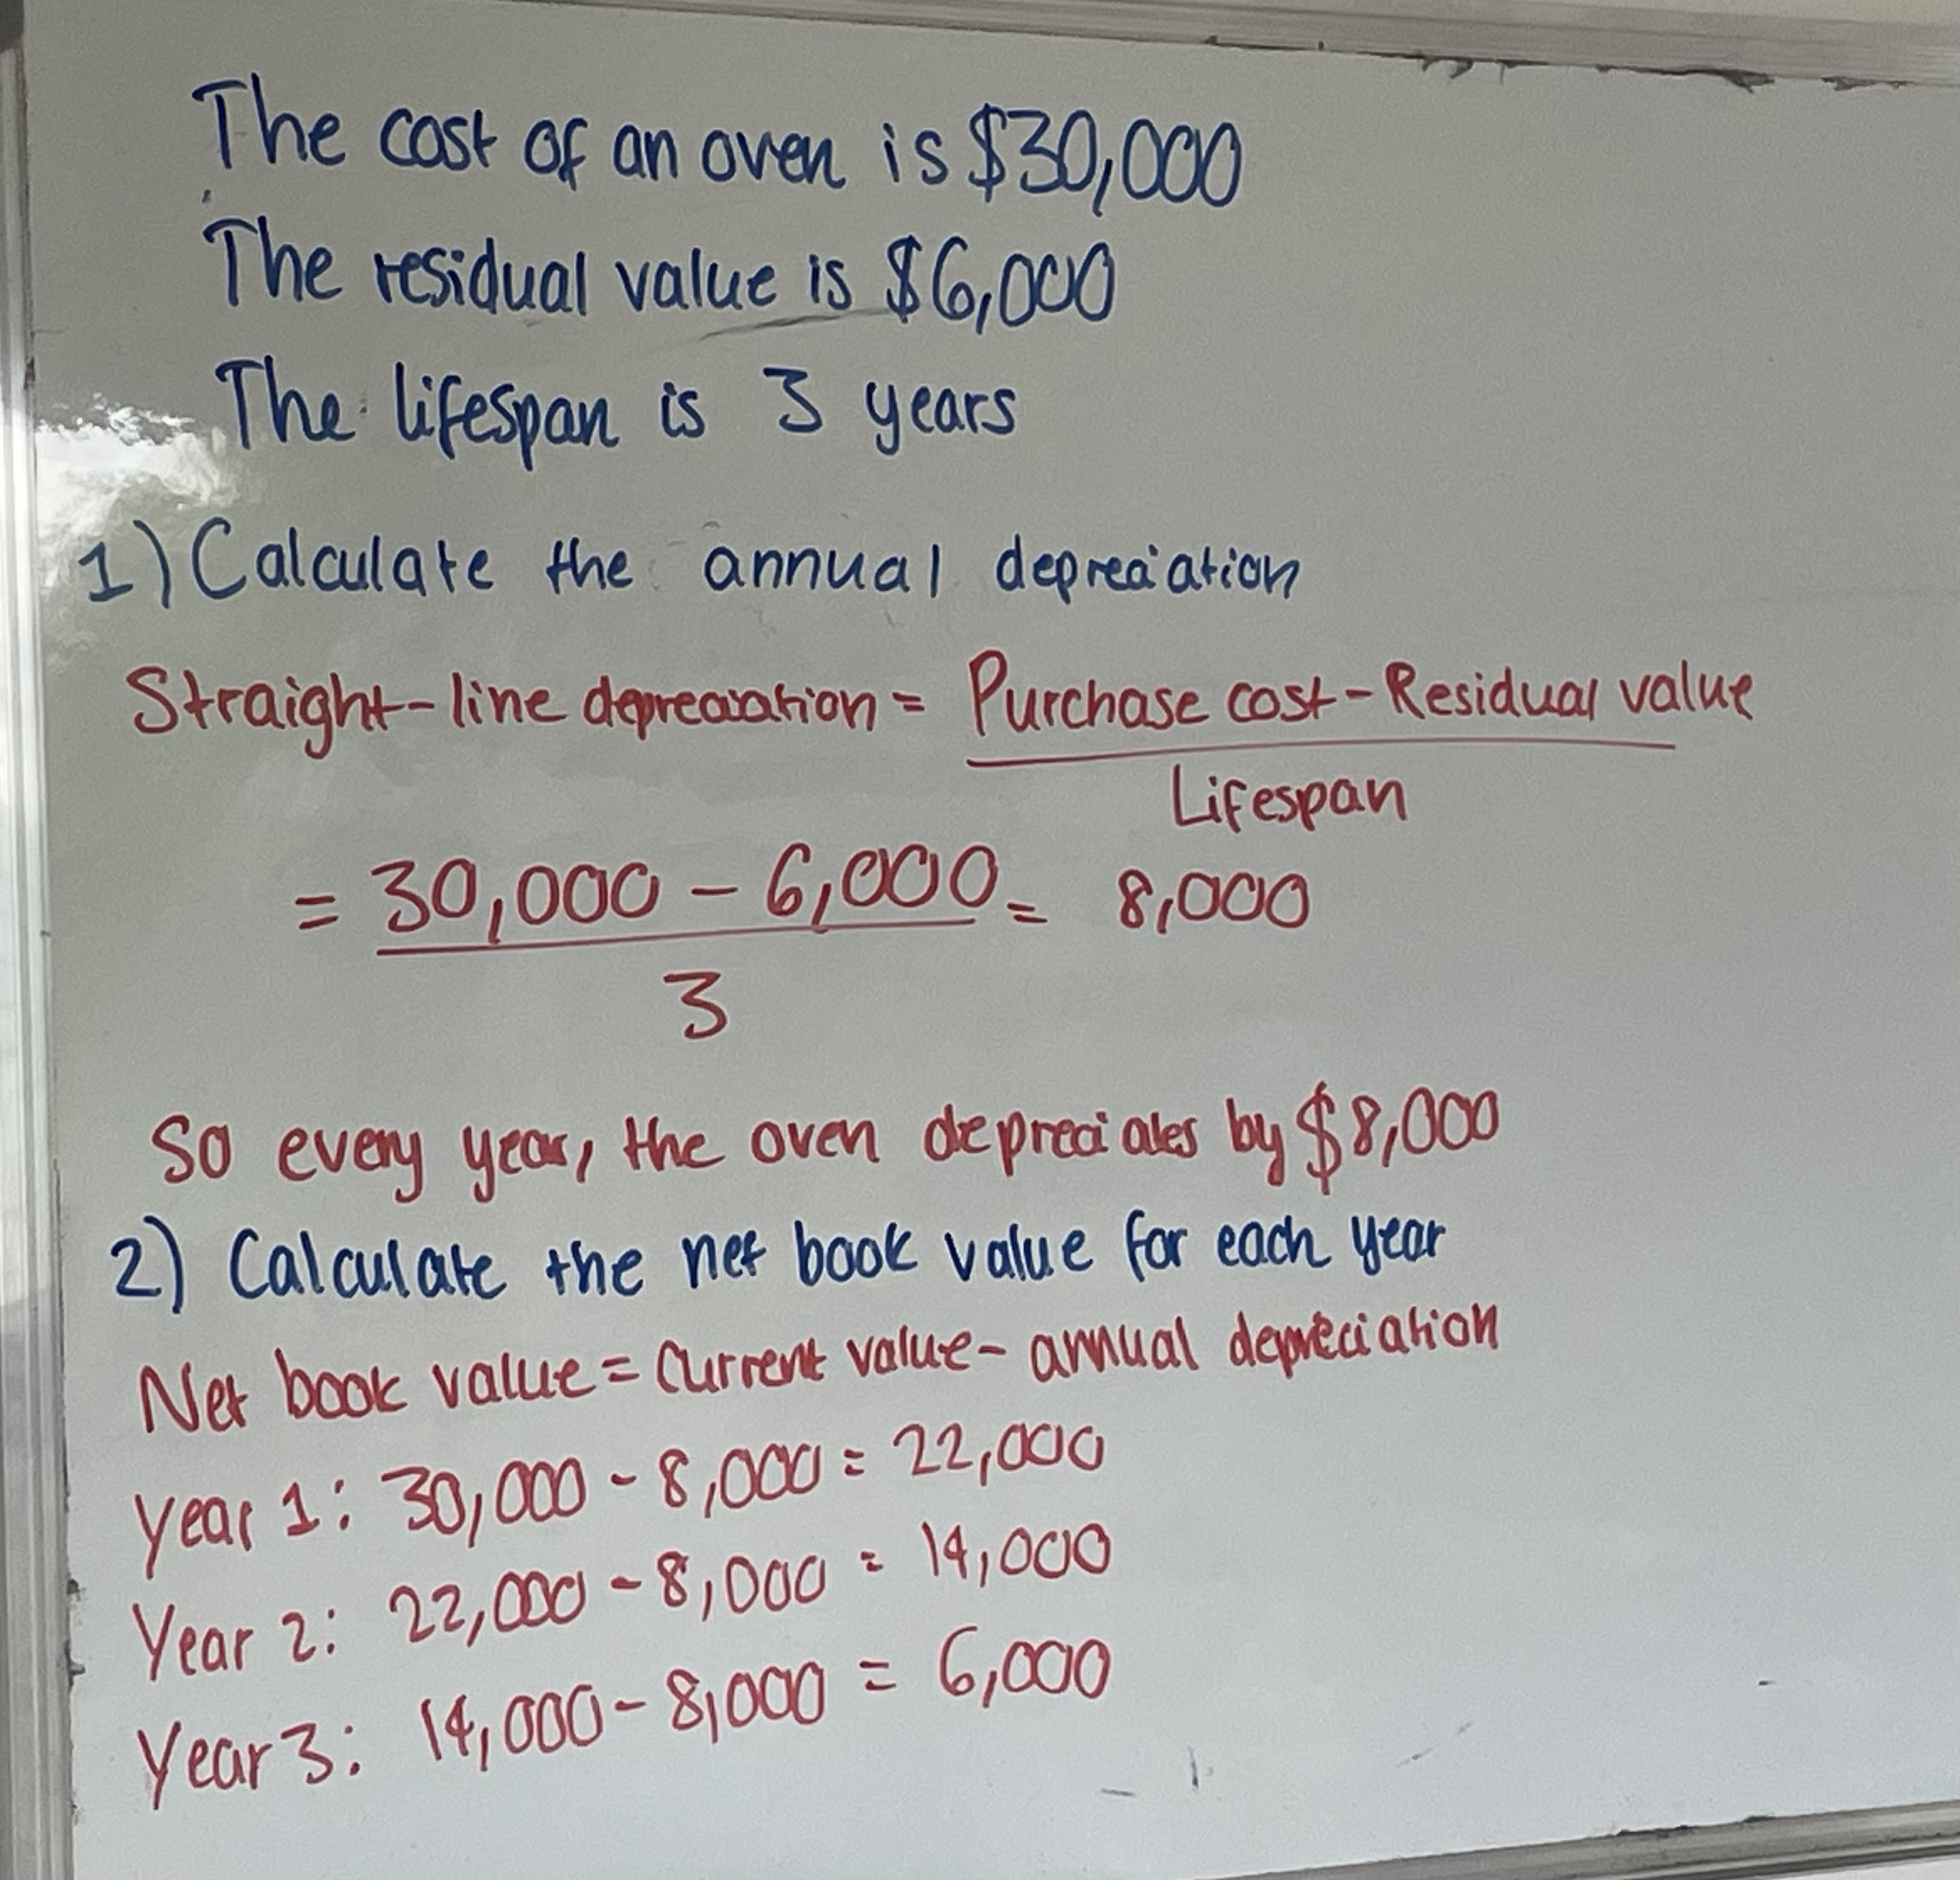 The cost of an oven is $30,000
The residual value is $6,000
The lifespan is 3 years
1) Calculate the annual depreciation
Straight-line depreciation = Purchase cost - Residual value
Lifespan
= 30,000 - 6,000 = 8,000
3
So every year, the oven depreciates by $8,000
2) Calculate the net book value for each year
Net book value = Current value - annual depreciation
Year 1: 30,000 - 8,000 = 22,000
Year 2: 22,000 - 8,000 = 14,000
Year 3: 14,000 - 8,000 = 6,000